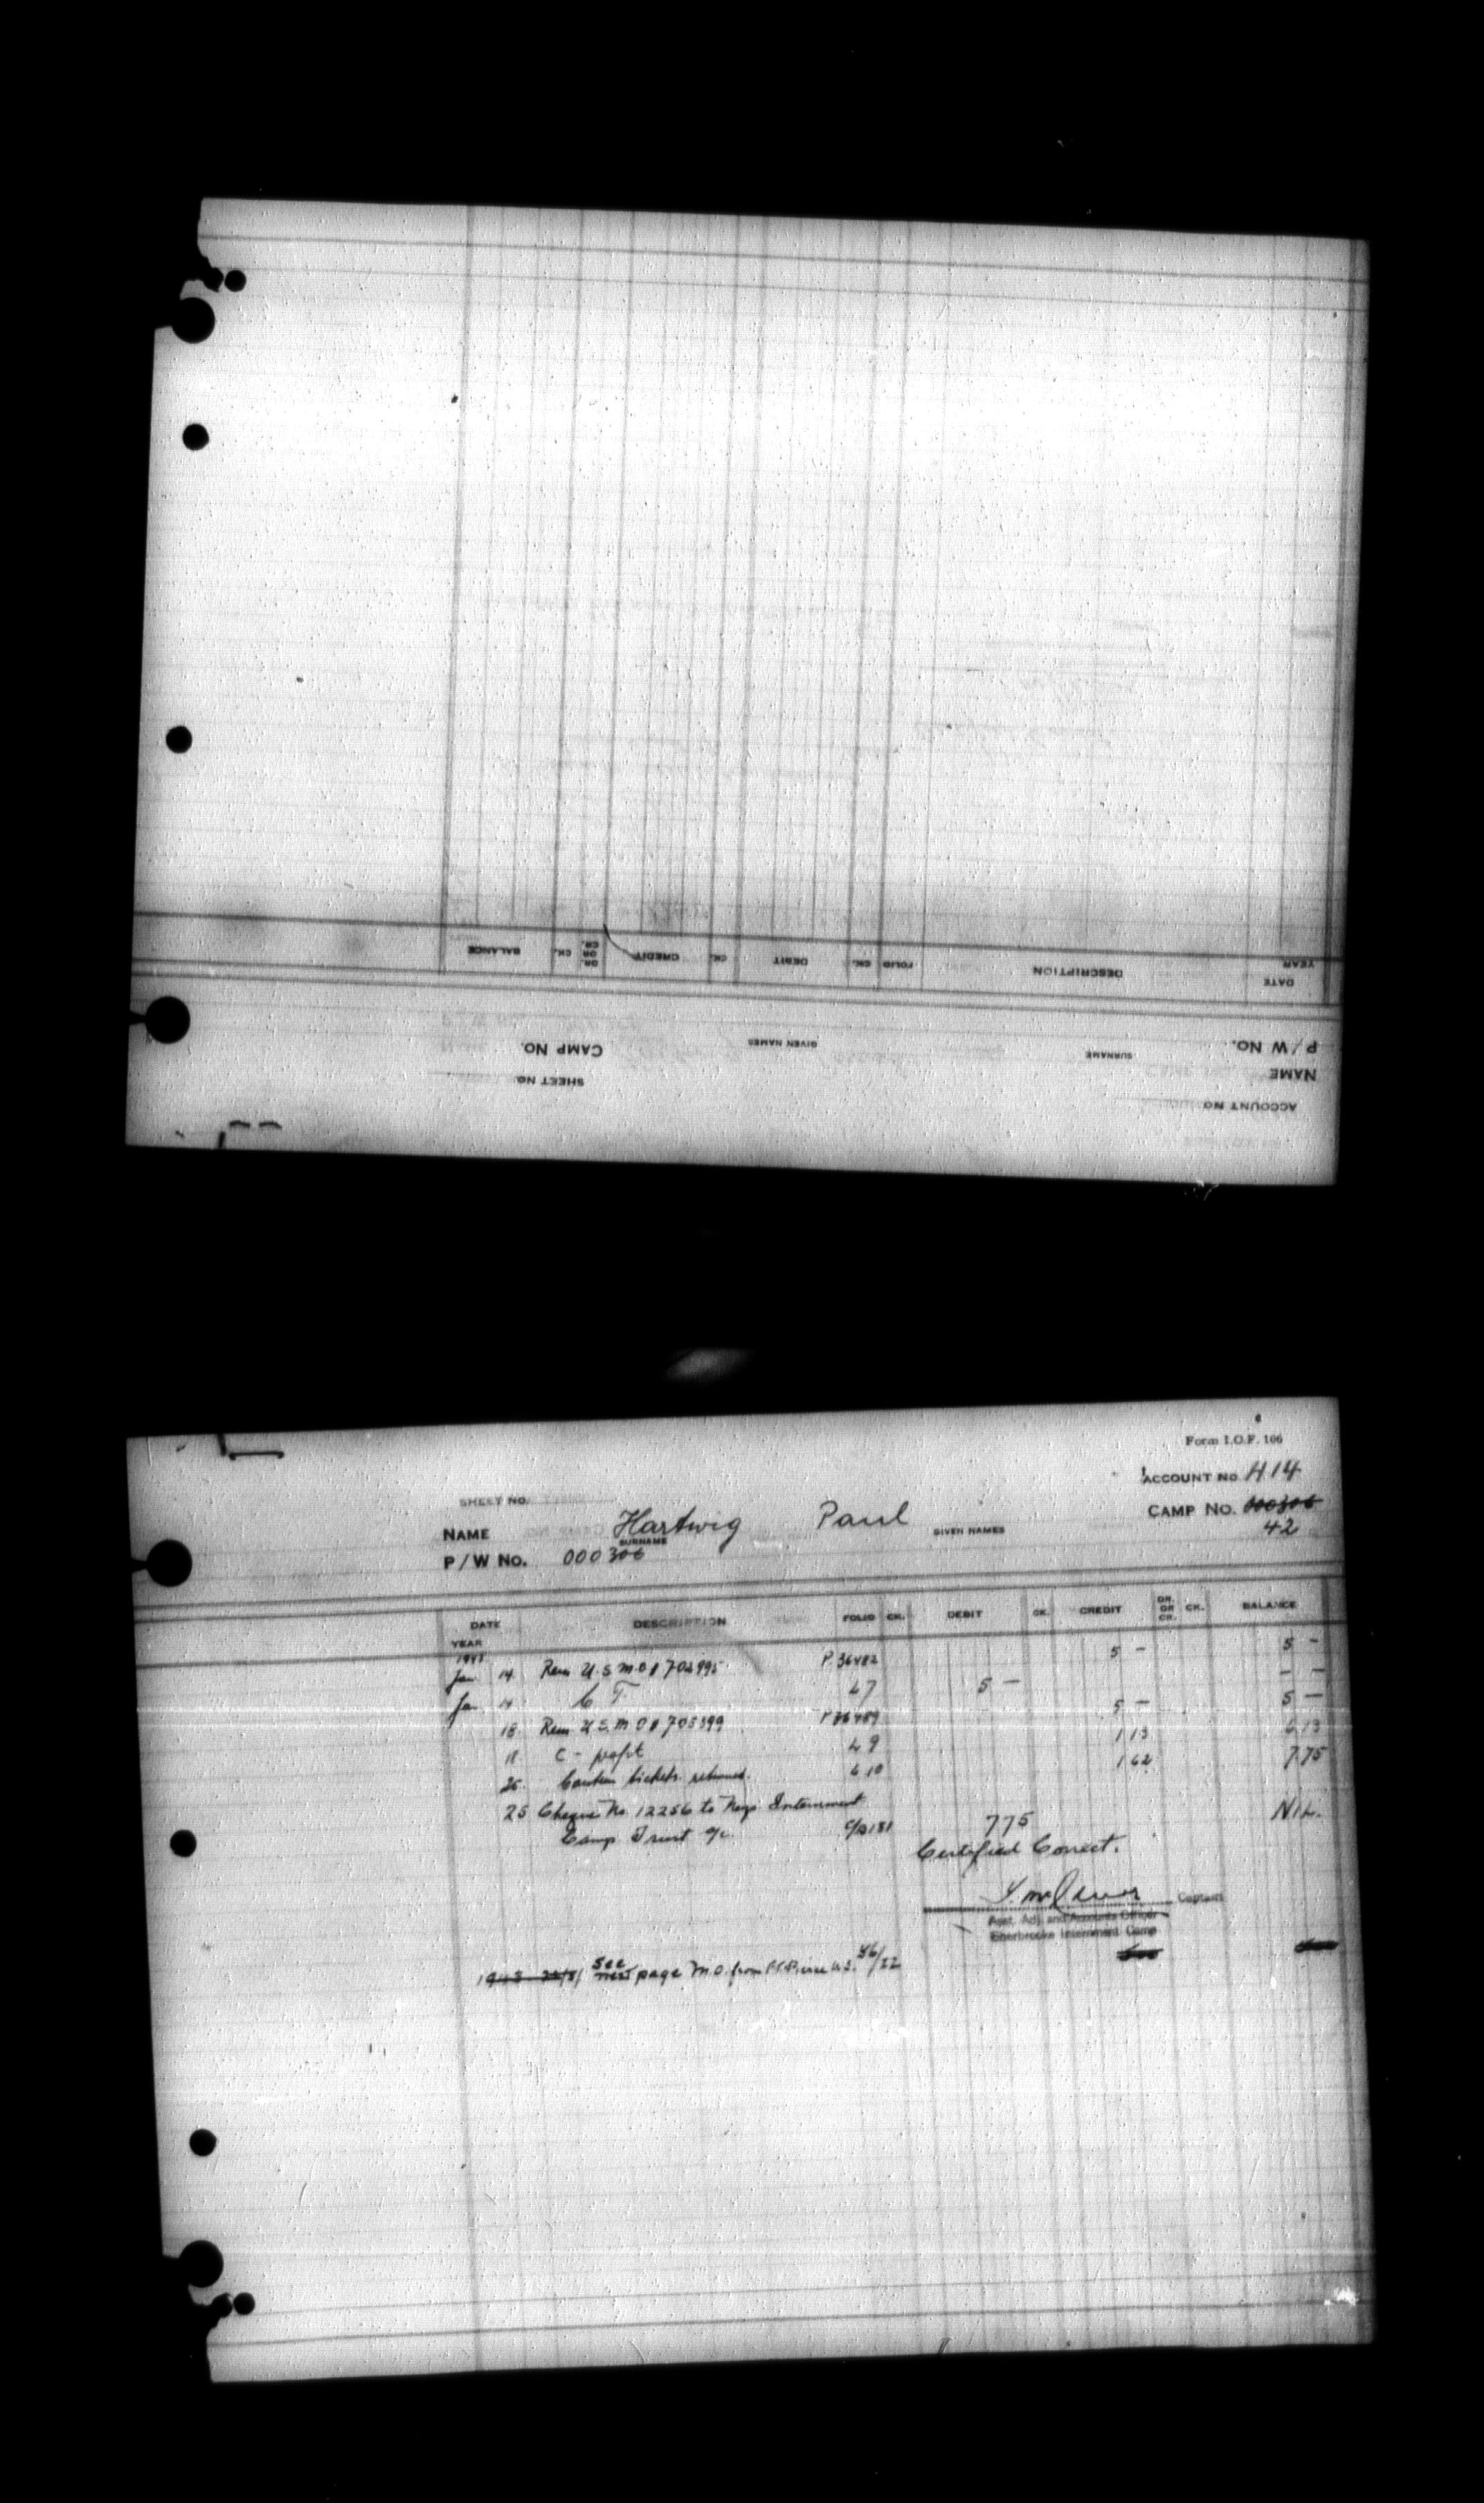 ACCOUNT NO.
NAME
SHEET NO.
P/W NO.
SURNAME
GIVEN NAMES
CAMP NO.
DATE
YEAR
DESCRIPTION
FOLIO
CK.
DEBIT
CK.
CREDIT
DR. OR CR.
CK.
BALANCE
Form I.O.F. 106
ACCOUNT NO. H14
SHEET NO.
CAMP NO. 000306
42
NAME Hartwig Paul
SURNAME GIVEN NAMES
P/W NO. 000306
DATE DESCRIPTION FOLIO CK. DEBIT CK. CREDIT DR. OR CR. CK. BALANCE
YEAR
Jan 14 Rem U.S.M.O. P. 36482 5 — 5 —
Jan 14 C T 47 5 — — —
18 Rem U.S.M.O. 5 — 5 —
C - profit 49 1 13 6 13
Canteen tickets returned 1 62 7.75
25 Cheque No. 12256 to Internment
Camp Trust a/c. 775 NIL.
Certified Correct.
Captain
Asst. Adj. and Accounts Officer
Sherbrooke Internment Camp
See
next page M.O. from